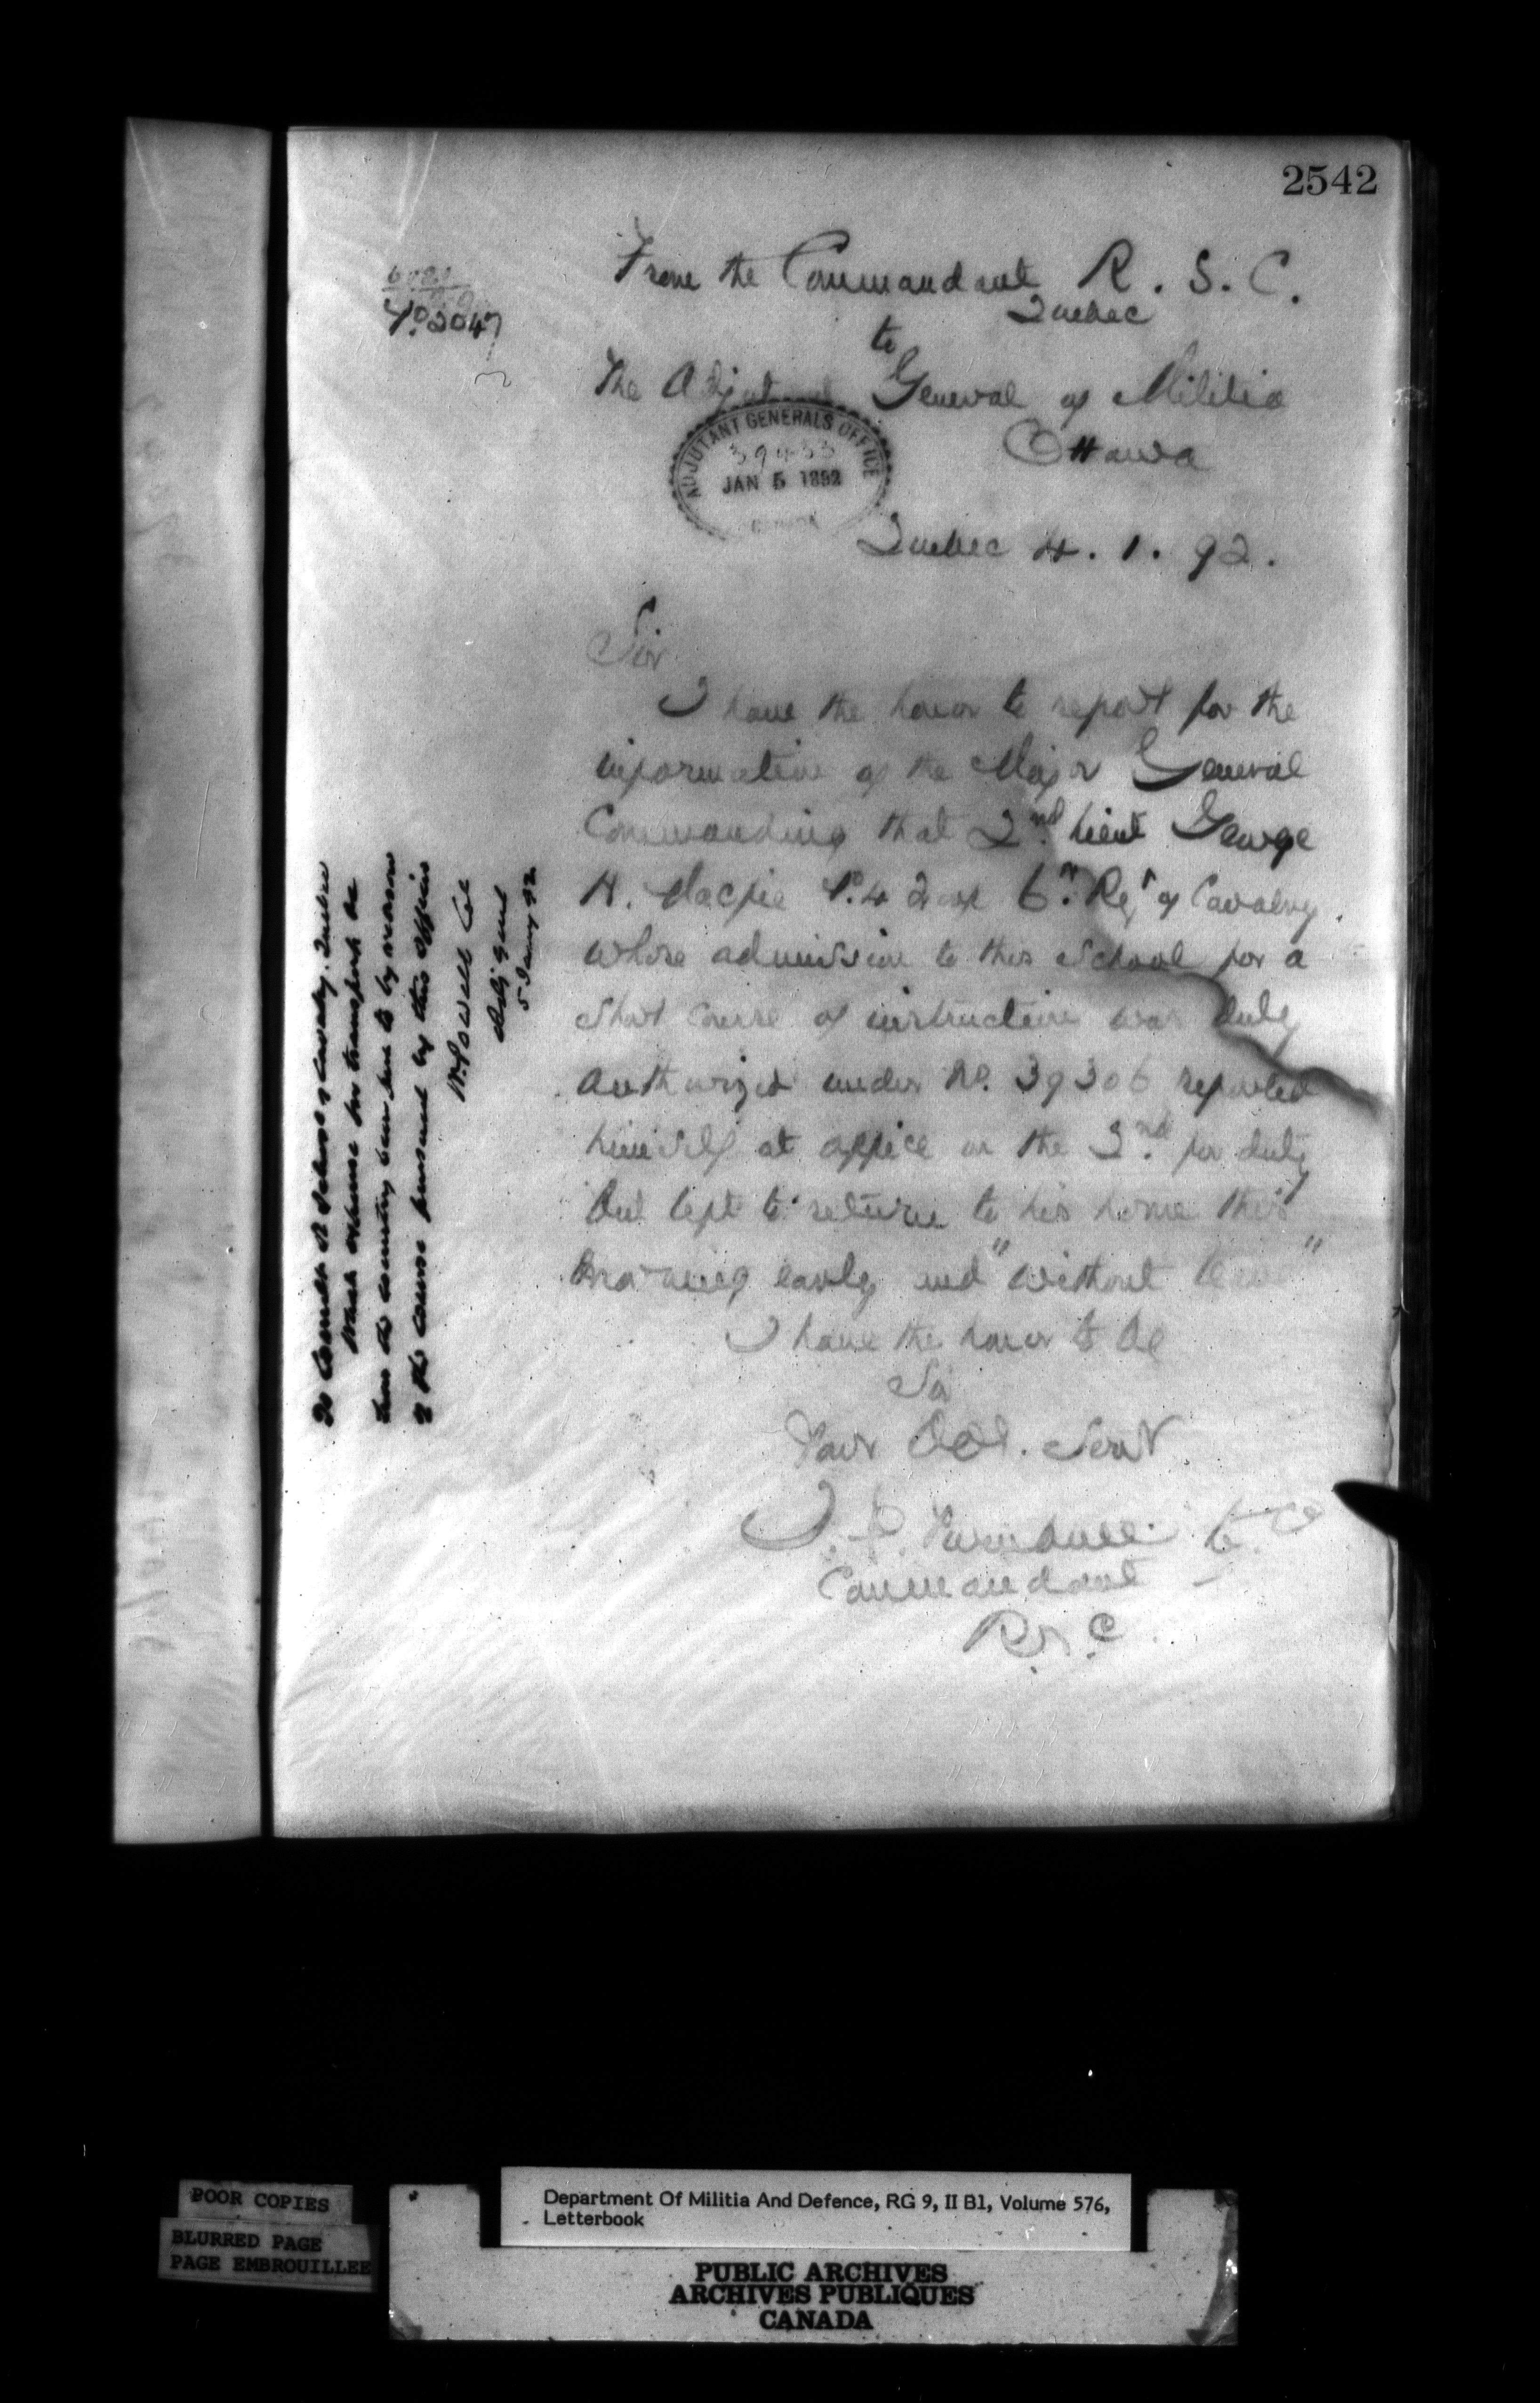 2542
No. 2047
From the Commandant R. S. C.
Quebec
to
The Adjutant General of Militia
Ottawa
ADJUTANT GENERALS OFFICE
39433
JAN 5 1892
CANADA
Quebec 4. 1. 92.
Sir
I have the honor to report for the
information of the Major General
Commanding that 2nd. Lieut George
H. Macfie No. 4 Troop 6th. Regt of Cavalry
whose admission to this School for a
Short Course of instruction was duly
authorized under No. 39306 reported
himself at office on the 2nd. for duty
but left to return to his home this
morning early and "without leave"
I have the honor to be
Sir
Your Obd. Servt
J. F. Turnbull Lt Col
Commandant
R. S. C
To Comdt R School of Cavalry. Quebec
What expense for transport &c
has the country been put to by reason
of the course pursued by this officer
W. Powell Col
Adj Genl
5 Jany 92
POOR COPIES
BLURRED PAGE
PAGE EMBROUILLEE
Department Of Militia And Defence, RG 9, II B1, Volume 576,
Letterbook
PUBLIC ARCHIVES
ARCHIVES PUBLIQUES
CANADA